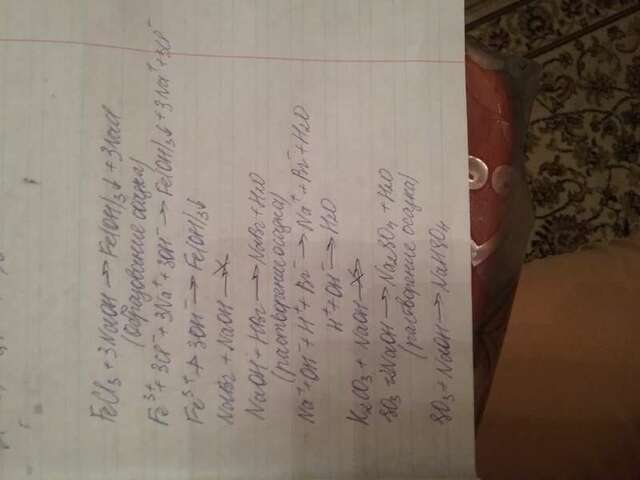 FeCl₃ + 3NaOH → Fe(OH)₃↓ + 3NaCl
(образование осадка)
Fe³⁺ + 3Cl⁻ + 3Na⁺ + 3OH⁻ → Fe(OH)₃↓ + 3Na⁺ + 3Cl⁻
Fe³⁺ + 3OH⁻ → Fe(OH)₃↓
NaBr + NaOH ↛
NaOH + HBr → NaBr + H₂O
(растворение осадка)
Na⁺ + OH⁻ + H⁺ + Br⁻ → Na⁺ + Br⁻ + H₂O
H⁺ + OH⁻ → H₂O
K₂CO₃ + NaOH ↛
SO₃ + 2NaOH → Na₂SO₄ + H₂O
(растворение осадка)
SO₃ + NaOH → NaHSO₄